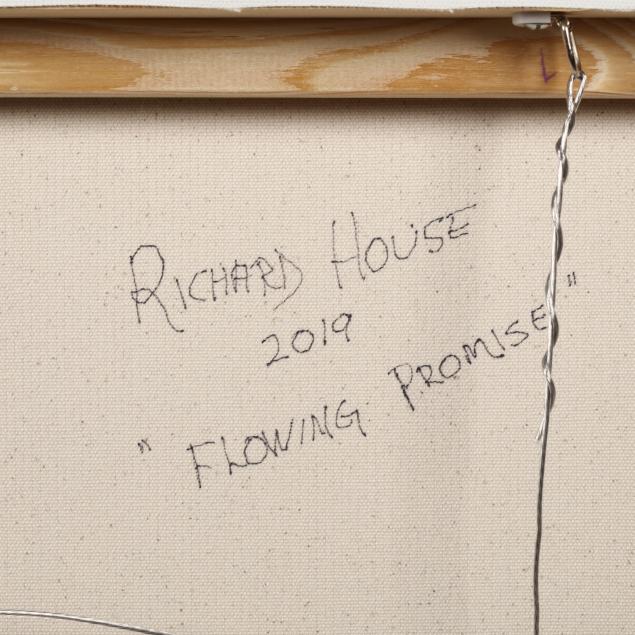 L
RICHARD HOUSE
2019
"FLOWING PROMISE"